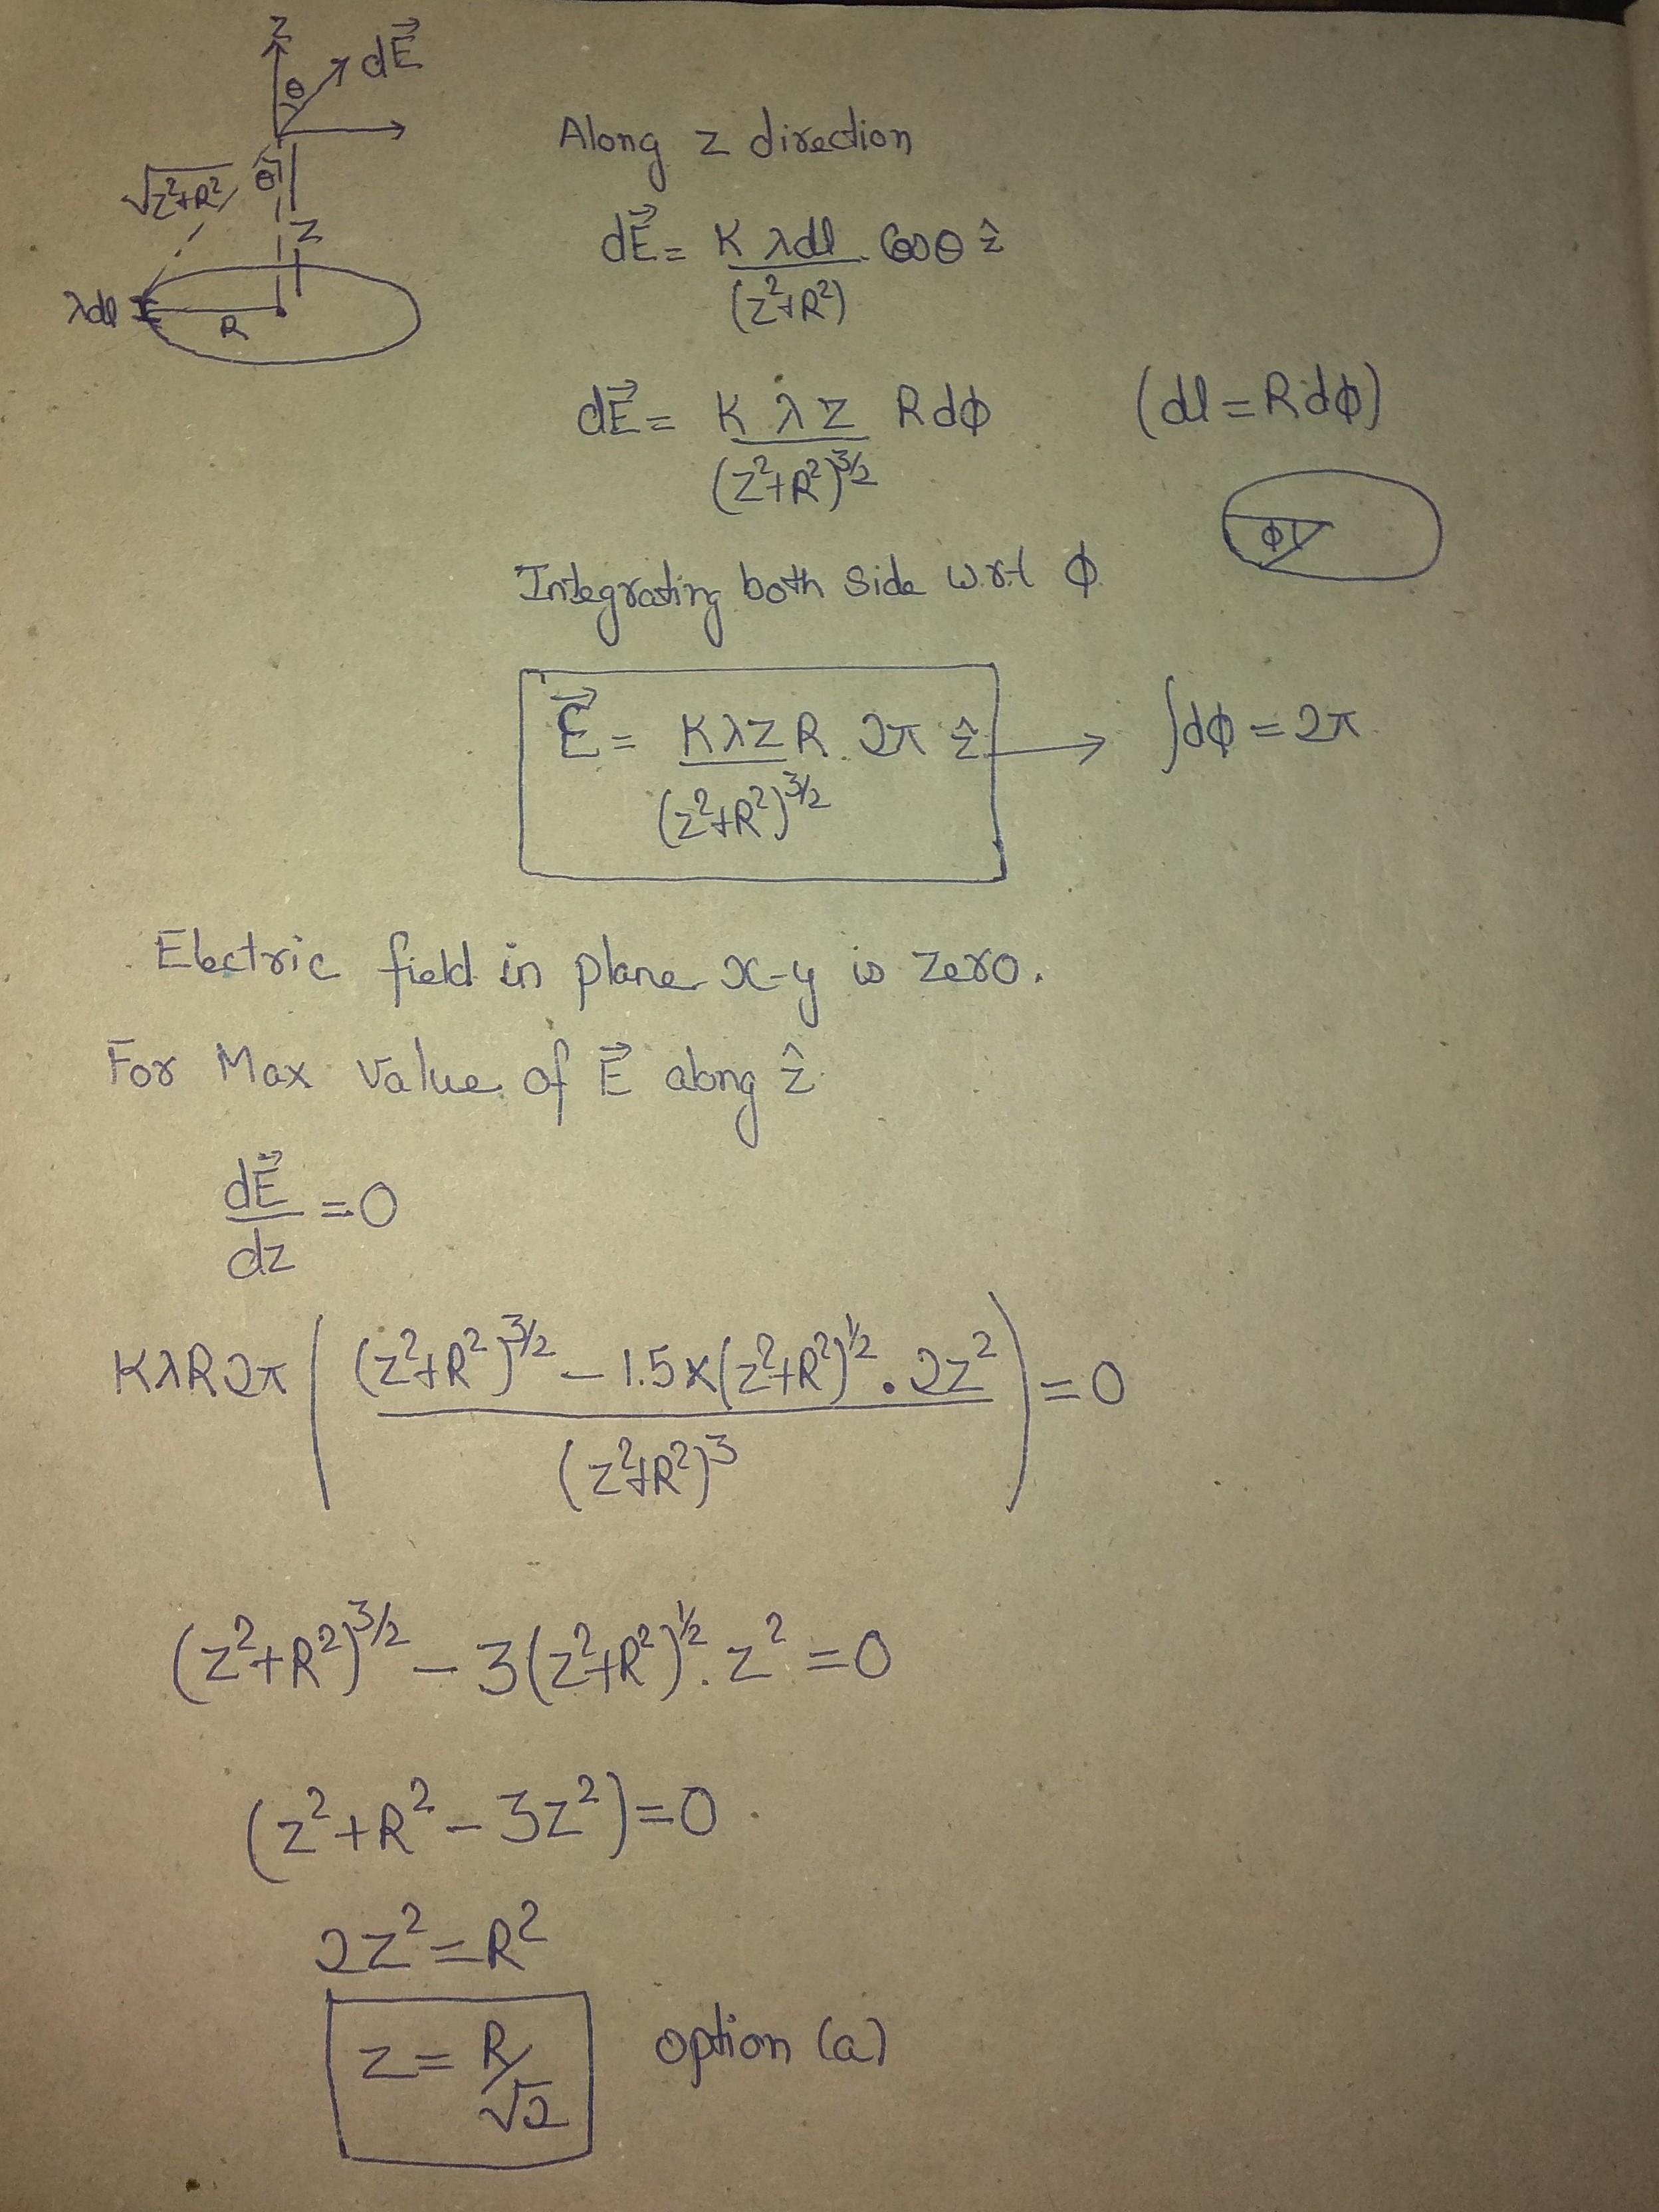 z
dE⃗
θ
√z²+R²
θ
z
λdl
R
Along z direction
dE⃗ = Kλdl/(z²+R²) . Cosθ ẑ
dE⃗ = Kλz/(z²+R²)^3/2 Rdϕ (dl=Rdϕ)
ϕ
Integrating both side w.r.t ϕ
E⃗ = KλzR. 2π ẑ/(z²+R²)^3/2 → ∫dϕ = 2π
Electric field in plane x-y is zero.
For Max value of E⃗ along ẑ
dE⃗/dz = 0
KλR2π ( ((z²+R²)^3/2 - 1.5×(z²+R²)^1/2 . 2z²)/(z²+R²)³ ) = 0
(z²+R²)^3/2 - 3(z²+R²)^1/2 . z² = 0
(z²+R²-3z²)=0
2z²=R²
z = R/√2 option (a)